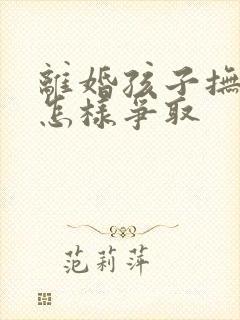 離婚孩子撫
怎樣爭取
范莉萍